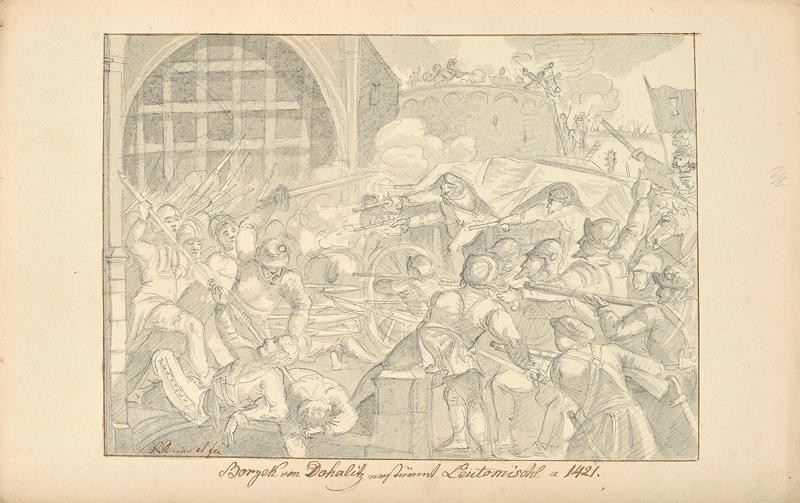 inv et fec
Boryek von Dohalitz erstürmt Leutomischl a 1421.